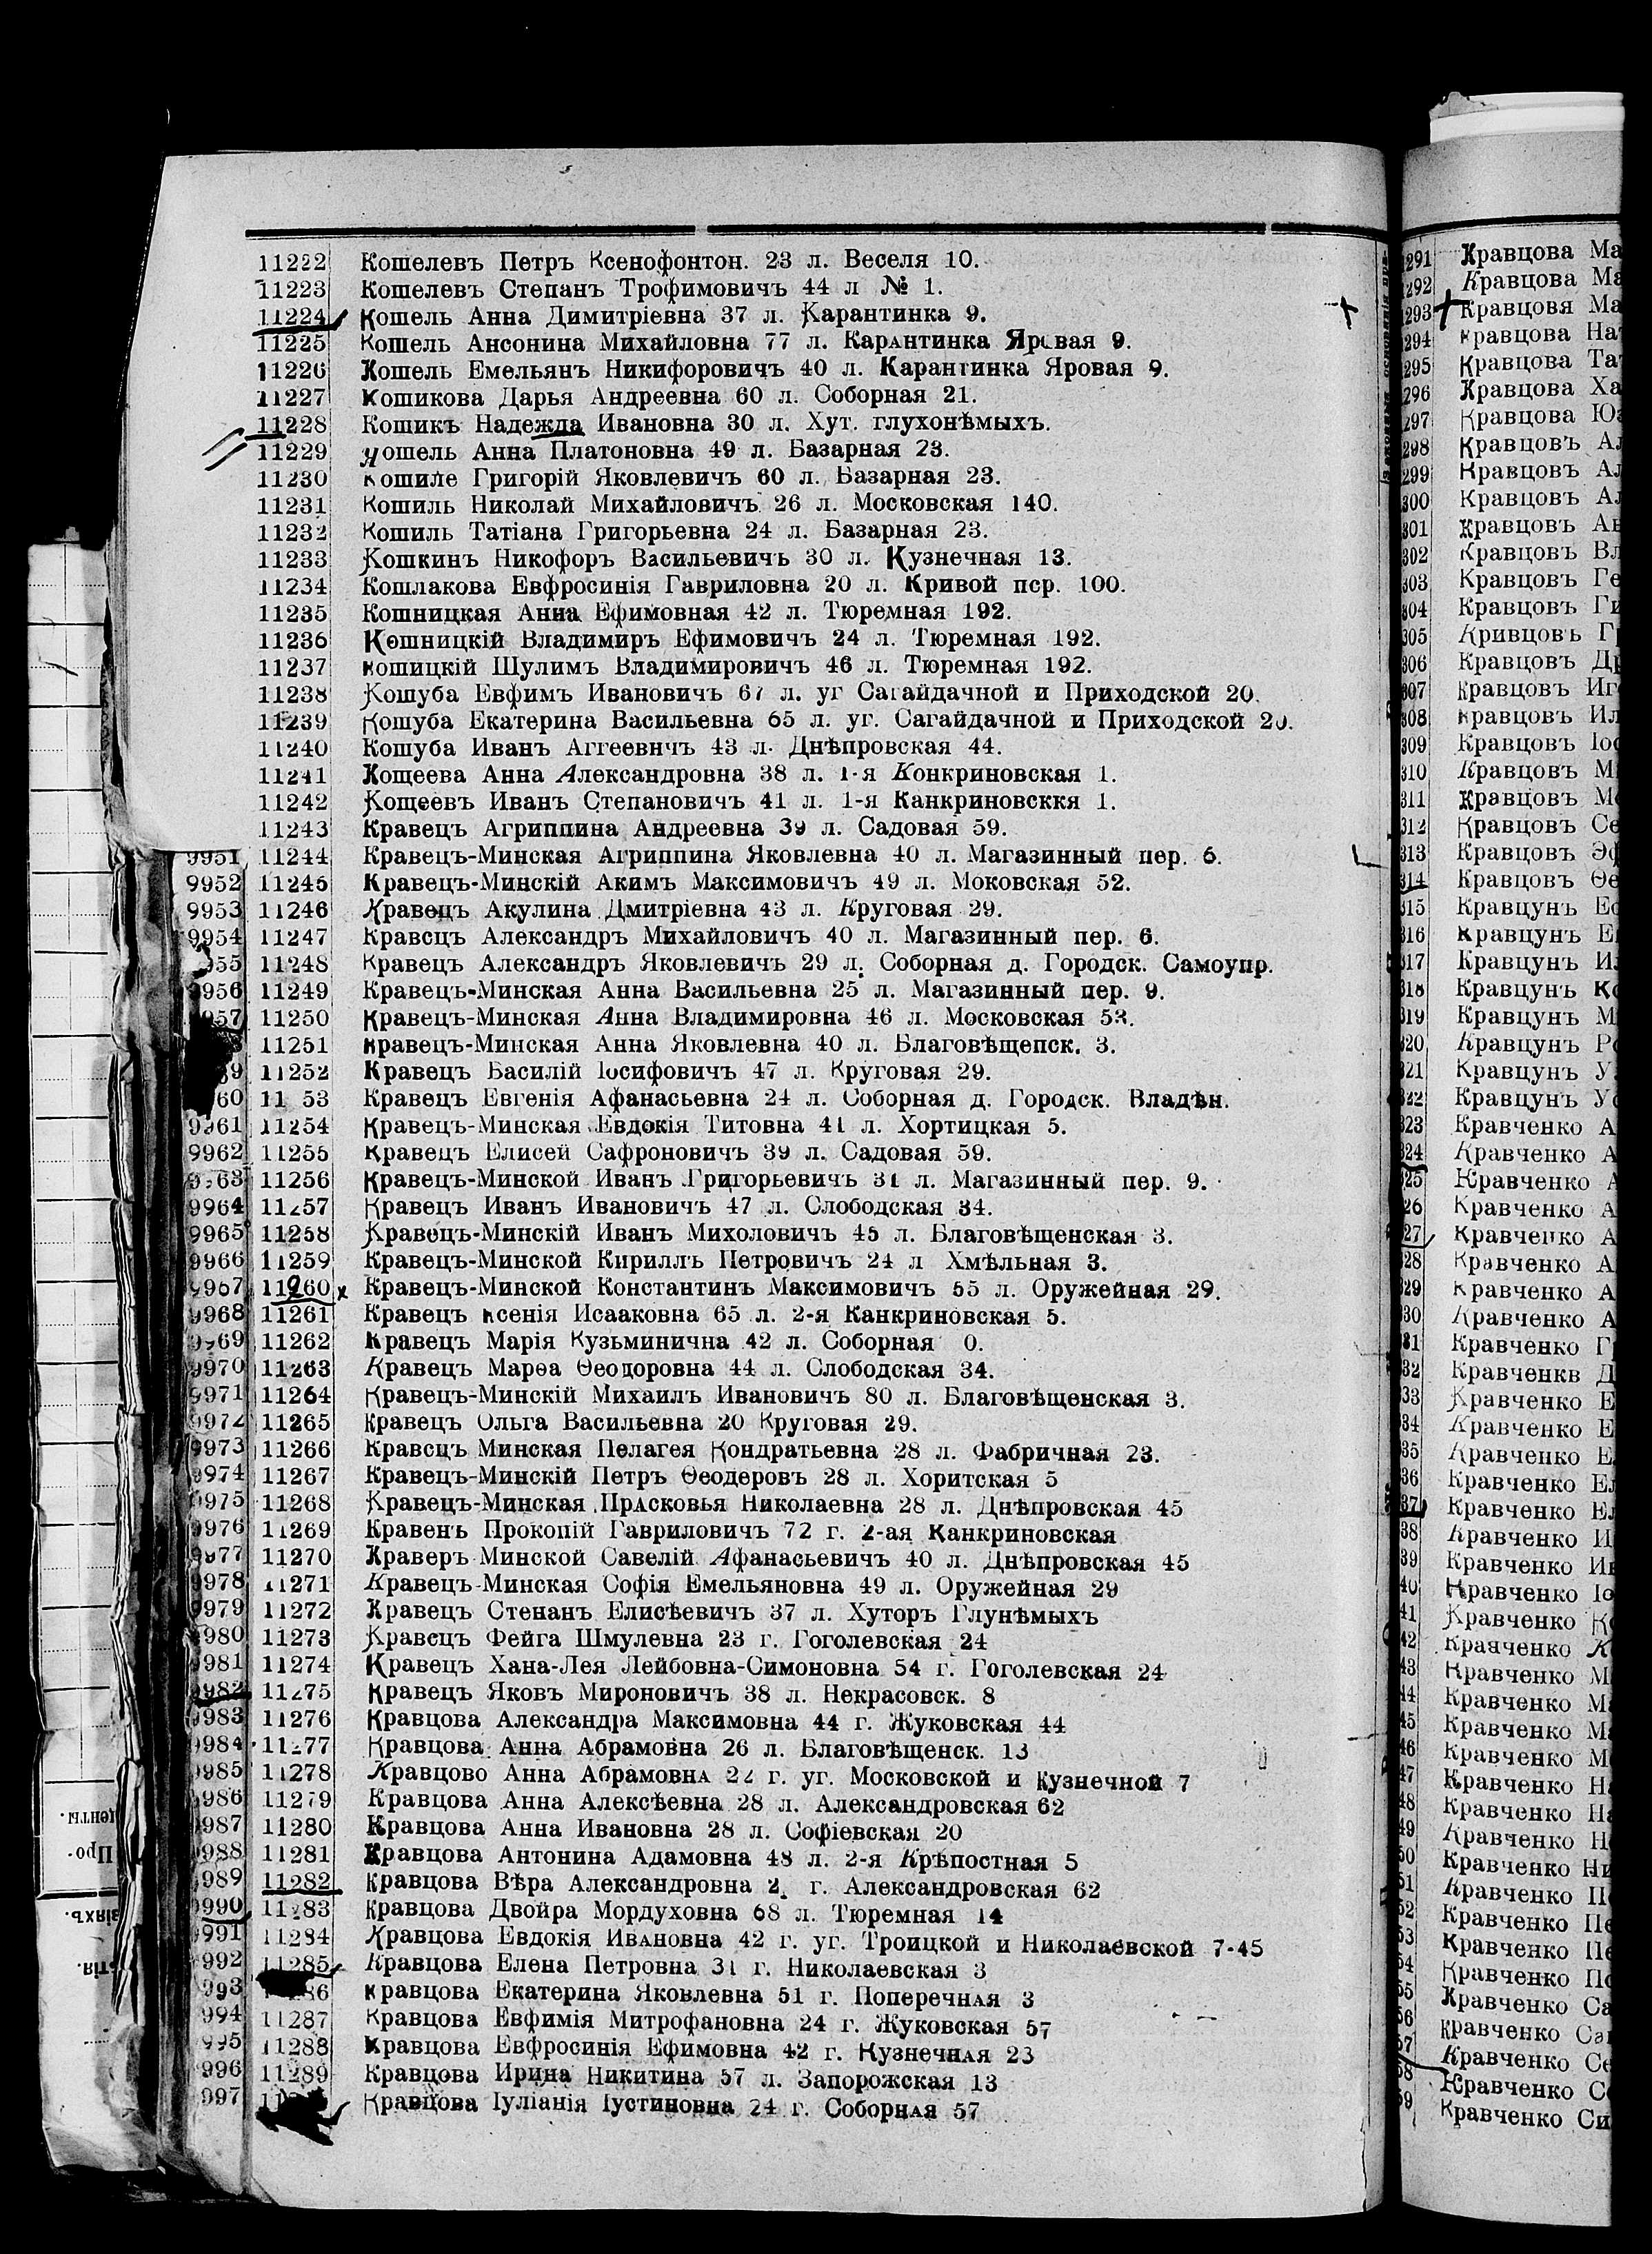 11222 Кошелевъ Петръ Ксенофонтон. 23 л. Веселя 10.
11223 Кошелевъ Степанъ Трофимовичъ 44 л № 1.
11224 Кошель Анна Димитріевна 37 л. Карантинка 9.
11225 Кошель Ансонина Михайловна 77 л. Карантинка Яровая 9.
11226 Кошель Емельянъ Никифоровичъ 40 л. Карантинка Яровая 9.
11227 Кошикова Дарья Андреевна 60 л. Соборная 21.
11228 Кошикъ Надежда Ивановна 30 л. Хут. глухонѣмыхъ.
11229 Кошель Анна Платоновна 49 л. Базарная 23.
11230 Кошиле Григорій Яковлевичъ 60 л. Базарная 23.
11231 Кошиль Николай Михайловичъ 26 л. Московская 140.
11232 Кошиль Татіана Григорьевна 24 л. Базарная 23.
11233 Кошкинъ Никофоръ Васильевичъ 30 л. Кузнечная 13.
11234 Кошлакова Евфросинія Гавриловна 20 л. Кривой пср. 100.
11235 Кошницкая Анна Ефимовная 42 л. Тюремная 192.
11236 Кошницкій Владимиръ Ефимовичъ 24 л. Тюремная 192.
11237 Кошицкій Шулимъ Владимировичъ 46 л. Тюремная 192.
11238 Кошуба Евфимъ Ивановичъ 67 л. уг Сагайдачной и Приходской 20.
11239 Кошуба Екатерина Васильевна 65 л. уг. Сагайдачной и Приходской 20.
11240 Кошуба Иванъ Аггеевнчъ 43 л. Днѣпровская 44.
11241 Кощеева Анна Александровна 38 л. 1-я Конкриновская 1.
11242 Кощеевъ Иванъ Степановичъ 41 л. 1-я Канкриновсккя 1.
11243 Кравецъ Агриппина Андреевна 39 л. Садовая 59.
9951 11244 Кравецъ-Минская Агриппина Яковлевна 40 л. Магазинный пер. 6.
9952 11245 Кравецъ-Минскій Акимъ Максимовичъ 49 л. Моковская 52.
9953 11246 Кравецъ Акулина Дмитріевна 43 л. Круговая 29.
9954 11247 Кравсцъ Александръ Михайловичъ 40 л. Магазинный пер. 6.
955 11248 Кравецъ Александръ Яковлевичъ 29 л. Соборная д. Городск. Самоупр.
9956 11249 Кравецъ-Минская Анна Васильевна 25 л. Магазинный пер. 9.
957 11250 Кравецъ-Минская Анна Владимировна 46 л. Московская 53.
11251 Кравецъ-Минская Анна Яковлевна 40 л. Благовѣщепск. 3.
11252 Кравецъ Василій Іосифовичъ 47 л. Круговая 29.
60 11 53 Кравецъ Евгенія Афанасьевна 24 л. Соборная д. Городск. Владѣн.
9961 11254 Кравецъ-Минская Евдокія Титовна 41 л. Хортицкая 5.
9962 11255 Кравецъ Елисей Сафроновичъ 39 л. Садовая 59.
9963 11256 Кравецъ-Минской Иванъ Григорьевичъ 31 л. Магазинный пер. 9.
9964 11257 Кравецъ Иванъ Ивановичъ 47 л. Слободская 34.
9965 11258 Кравецъ-Минскій Иванъ Михоловичъ 45 л. Благовѣщенская 3.
9966 11259 Кравецъ-Минской Кириллъ Петровичъ 24 л Хмѣльная 3.
9967 11260 х Кравецъ-Минской Константинъ Максимовичъ 55 л. Оружейная 29.
9968 11261 Кравецъ Ксенія Исааковна 65 л. 2-я Канкриновская 5.
9969 11262 Кравецъ Марія Кузьминична 42 л. Соборная 0.
9970 11263 Кравецъ Марѳа Ѳеодоровна 44 л. Слободская 34.
9971 11264 Кравецъ-Минскій Михаилъ Ивановичъ 80 л. Благовѣщенская 3.
9972 11265 Кравецъ Ольга Васильевна 20 Круговая 29.
9973 11266 Кравсцъ Минская Пелагея Кондратьевна 28 л. Фабричная 23.
9974 11267 Кравецъ-Минскій Петръ Ѳеодеровъ 28 л. Хоритская 5
9975 11268 Кравецъ-Минская Прасковья Николаевна 28 л. Днѣпровская 45
9976 11269 Кравенъ Прокопій Гавриловичъ 72 г. 2-ая Канкриновская
9977 11270 Краверъ-Минской Савелій Афанасьевичъ 40 л. Днѣпровская 45
9978 11271 Кравецъ-Минская Софія Емельяновна 49 л. Оружейная 29
9979 11272 Кравецъ Стенанъ Елисѣевичъ 37 л. Хуторъ Глунѣмыхъ
9980 11273 Кравсцъ Фейга Шмулевна 23 г. Гоголевская 24
9981 11274 Кравецъ Хана-Лея Лейбовна-Симоновна 54 г. Гоголевская 24
9982 11275 Кравецъ Яковъ Мироновичъ 38 л. Некрасовск. 8
9983 11276 Кравцова Александра Максимовна 44 г. Жуковская 44
9984 11277 Кравцова Анна Абрамовна 26 л. Благовѣщенск. 13
9985 11278 Кравцово Анна Абрамовна 22 г. уг. Московской и Кузнечной 7
9986 11279 Кравцова Анна Алексѣевна 28 л. Александровская 62
9987 11280 Кравцова Анна Ивановна 28 л. Софіевская 20
9988 11281 Кравцова Антонина Адамовна 48 л. 2-я Крѣпостная 5
989 11282 Кравцова Вѣра Александровна 2 г. Александровская 62
9990 11283 Кравцова Двойра Мордуховна 68 л. Тюремная 14
9991 11284 Кравцова Евдокія Ивановна 42 г. уг. Троицкой и Николаевской 7-45
992 11285 Кравцова Елена Петровна 31 г. Николаевская 3
993 86 Кравцова Екатерина Яковлевна 51 г. Поперечная 3
994 11287 Кравцова Евфимія Митрофановна 24 г. Жуковская 57
995 11288 Кравцова Евфросинія Ефимовна 42 г. Кузнечная 23
996 11289 Кравцова Ирина Никитина 57 л. Запорожская 13
997 Кравцова Іуліанія Іустиновна 24 г. Соборная 57
291 Кравцова
292 Кравцова
293 Кравцовя
294 Кравцова
295 Кравцова
296 Кравцова
297 Кравцова
298 Кравцовъ
299 Кравцовъ
300 Кравцовъ
301 Кравцовъ
302 Кравцовъ
303 Кравцовъ
304 Кравцовъ
305 Кривцовъ
306 Кравцовъ
307 Кравцовъ
308 Кравцовъ
309 Кравцовъ
310 Кравцовъ
311 Кравцовъ
312 Кравцовъ
313 Кравцовъ
314 Кравцовъ
315 Кравцунъ
316 Кравцунъ
317 Кравцунъ
318 Кравцунъ
319 Кравцунъ
320 Кравцунъ
321 Кравцунъ
322 Кравцунъ
323 Кравченко
324 Кравченко
325 Кравченко
26 Кравченко
27 Кравченко
28 Кравченко
29 Кравченко
30 Кравченко
31 Кравченко
32 Кравченкв
33 Кравченко
34 Кравченко
35 Кравченко
36 Кравченко
37 Кравченко
38 Кравченко
39 Кравченко
40 Кравченко
41 Кравченко
42 Краяченко
43 Кравченко
44 Кравченко
45 Кравченко
46 Кравченко
47 Кравченко
48 Кравченко
49 Кравченко
50 Кравченко
51 Кравченко
52 Кравченко
53 Кравченко
54 Кравченко
55 Кравченко
56 Кравченко
57 Кравченко
58 Кравченко
59 Кравченко